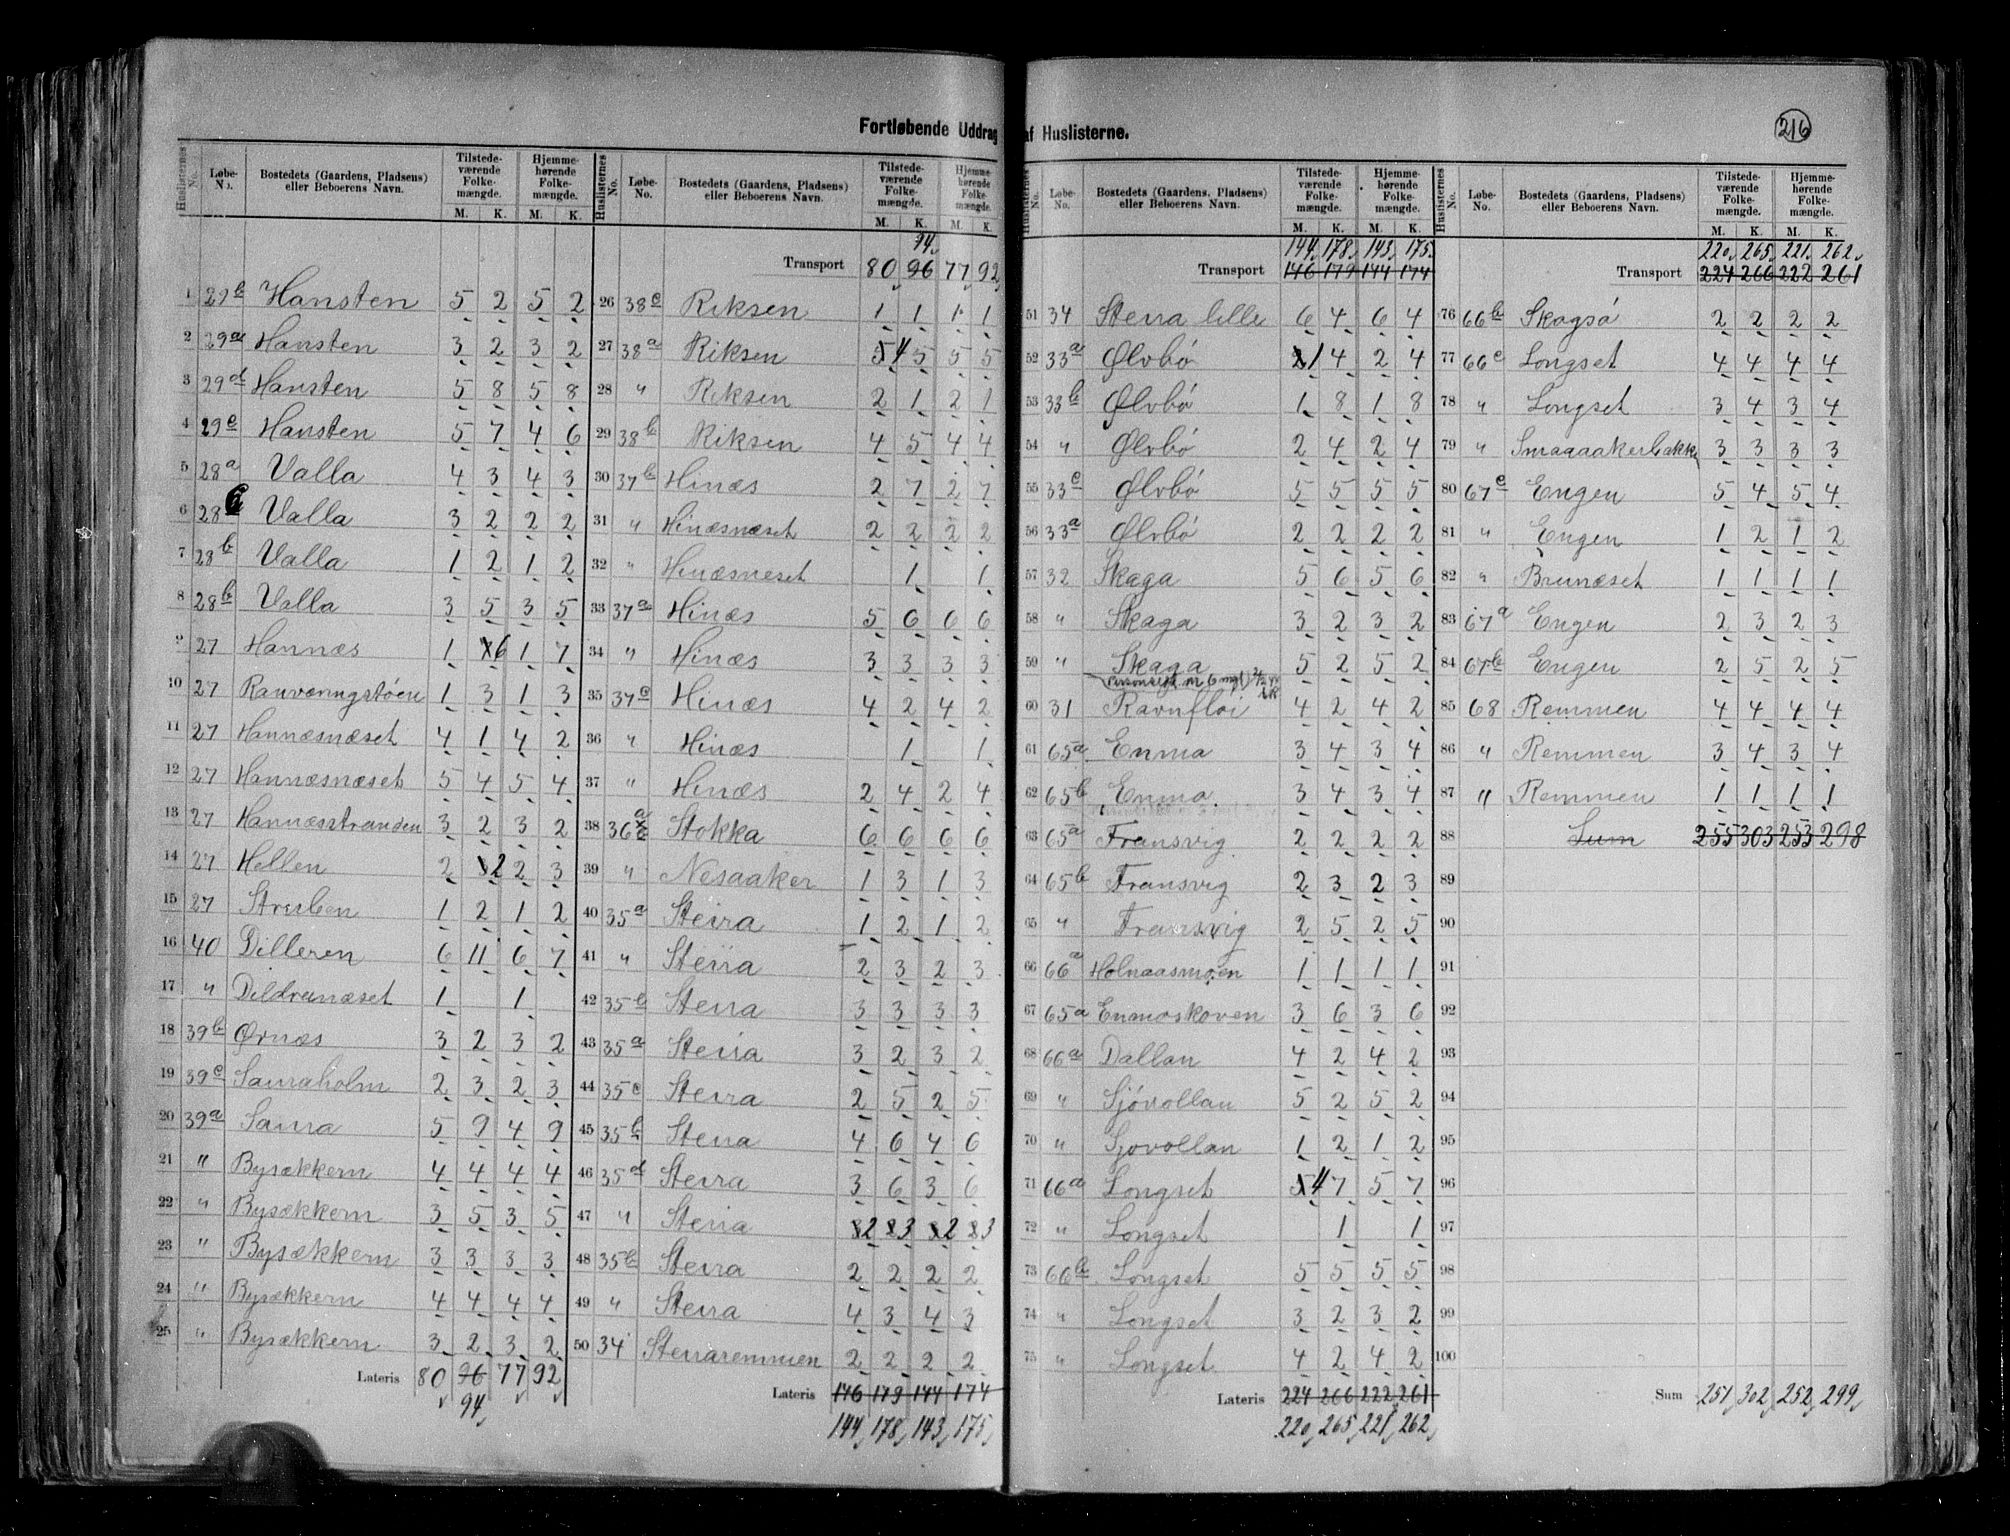 Fortløbende Uddrag af Huslisterne.
216
Huslisternes No. Løbe-No. Bostedets (Gaardens, Pladsens) eller Beboerens Navn. Tilstedeværende Folkemængde. M. K. Hjemmehørende Folkemængde. M. K.
1 29b Hansten 5 2 5 2
2 29a Hansten 3 2 3 2
3 29d Hansten 5 8 5 8
4 29c Hansten 5 7 4 6
5 28a Valla 4 3 4 3
6 28c Valla 3 2 2 2
7 28b Valla 1 2 1 2
8 28b Valla 3 5 3 5
9 27 Hannæs 1 6 1 7
10 27 Ranværingstøen 1 3 1 3
11 27 Hannæsnæset 4 1 4 2
12 27 Hannæsnæset 5 4 5 4
13 27 Hannæsstranden 3 2 3 2
14 27 Hellen 2 2 2 3
15 27 Struben 1 2 1 2
16 40 Dilleren 6 11 6 7
17 " Dildrenæset 1 1
18 39b Ørnæs 3 2 3 2
19 39c Sauraholm 2 3 2 3
20 39a Saura 5 9 4 9
21 " Bysækkern 4 4 4 4
22 " Bysækkern 3 5 3 5
23 " Bysækkern 3 3 3 3
24 " Bysækkern 4 4 4 4
25 " Bysækkern 3 2 3 2
Lateris 80 96 77 92
94
Huslisternes No. Løbe-No. Bostedets (Gaardens, Pladsens) eller Beboerens Navn. Tilstedeværende Folkemængde. M. K. Hjemmehørende Folkemængde. M. K.
94
Transport 80 96 77 92
26 38c Riksen 1 1 1 1
27 38a Riksen 5 4 5 5 5
28 " Riksen 2 1 2 1
29 38b Riksen 4 5 4 4
30 37b Hinæs 2 7 2 7
31 " Hinæsnæset 2 2 2 2
32 " Hinæsneset 1 1
33 37a Hinæs 5 6 6 6
34 " Hinæs 3 3 3 3
35 37c Hinæs 4 2 4 2
36 " Hinæs 1 1
37 " Hinæs 2 4 2 4
38 36a Stokka 6 6 6 6
39 " Nesaaker 1 3 1 3
40 35a Steira 1 2 1 2
41 " Steira 2 3 2 3
42 35b Steira 3 3 3 3
43 35a Steira 3 2 3 2
44 35c Steira 2 5 2 5
45 35b Steira 4 6 4 6
46 35d Steira 3 6 3 6
47 " Steira 2 3 2 3
48 35b Steira 2 2 2 2
49 " Steira 4 3 4 3
50 34 Steiraremmen 2 2 2 2
Lateris 146 179 144 174
144 178 143 175
Huslisternes No. Løbe-No. Bostedets (Gaardens, Pladsens) eller Beboerens Navn. Tilstedeværende Folkemængde. M. K. Hjemmehørende Folkemængde. M. K.
144 178 143 175
Transport 146 179 144 174
51 34 Steira lille 6 4 6 4
52 33a Ølvbø 1 4 2 4
53 33b Ølvbø 1 8 1 8
54 " Ølvbø 2 4 2 4
55 33c Ølvbø 5 5 5 5
56 33a Ølvbø 2 2 2 2
57 32 Skaga 5 6 5 6
58 " Skaga 3 2 3 2
59 " Skaga 5 2 5 2
60 31 Ravnfløi 4 2 4 2
61 65a Enma 3 4 3 4
62 65b Enma 3 4 3 4
63 65a Fransvig 2 2 2 2
64 65b Fransvig 2 3 2 3
65 " Fransvig 2 5 2 5
66 66a Holnaasmoen 1 1 1 1
67 65a Enmaskoven 3 6 3 6
68 66a Dallan 4 2 4 2
69 " Sjøvollan 5 2 5 2
70 " Sjøvollan 1 2 1 2
71 66a Longset 5 4 7 5 7
72 " Longset 1 1
73 66b Longset 5 5 5 5
74 " Longset 3 2 3 2
75 " Longset 4 2 4 2
Lateris 224 266 222 261
220 265 221 262
Huslisternes No. Løbe-No. Bostedets (Gaardens, Pladsens) eller Beboerens Navn. Tilstedeværende Folkemængde. M. K. Hjemmehørende Folkemængde. M. K.
220 265 221 262
Transport 224 266 222 261
76 66b Skagsø 2 2 2 2
77 66c Longset 4 4 4 4
78 " Longset 3 4 3 4
79 " Smaaaakerbakk 3 3 3 3
80 67c Engen 5 4 5 4
81 " Engen 1 2 1 2
82 " Brunæset 1 1 1 1
83 67a Engen 2 3 2 3
84 67b Engen 2 5 2 5
85 68 Remmen 4 4 4 4
86 " Remmen 3 4 3 4
87 " Remmen 1 1 1 1
88 Sum 255 303 253 298
89
90
91
92
93
94
95
96
97
98
99
100
Sum 251 302 252 299